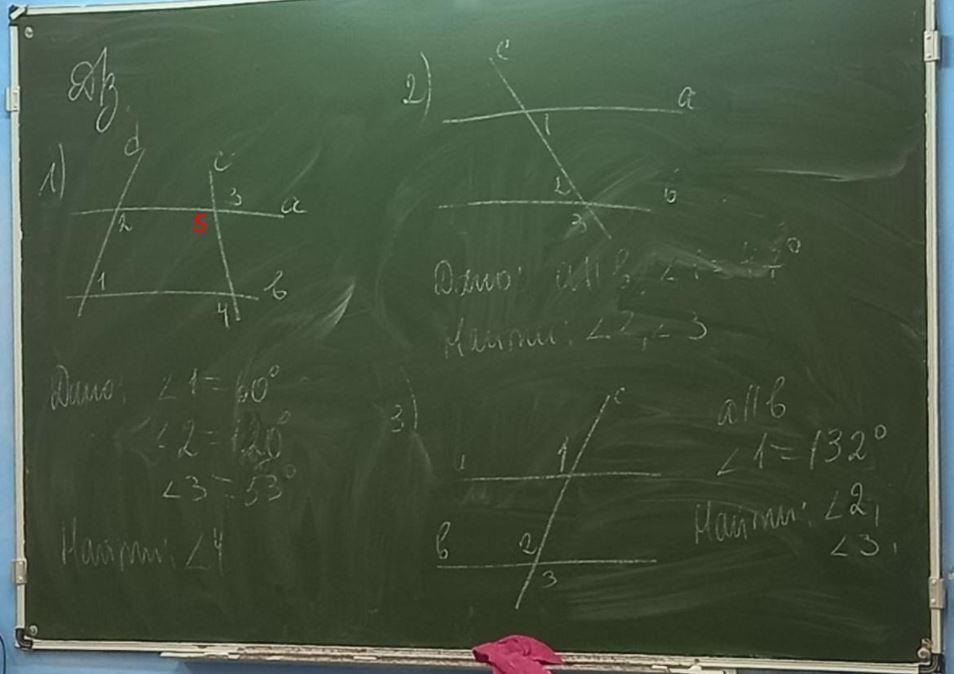 Дз
1)
d
c
3
a
2
5
1
b
4
Дано: ∠1=60°
∠2=120°
∠3=53°
Найти: ∠4
2)
c
a
1
2
b
3
Дано: a||b, ∠1=
Найти: ∠2, ∠3
3)
c
1
b
2
3
a||b
∠1=132°
Найти: ∠2,
∠3,